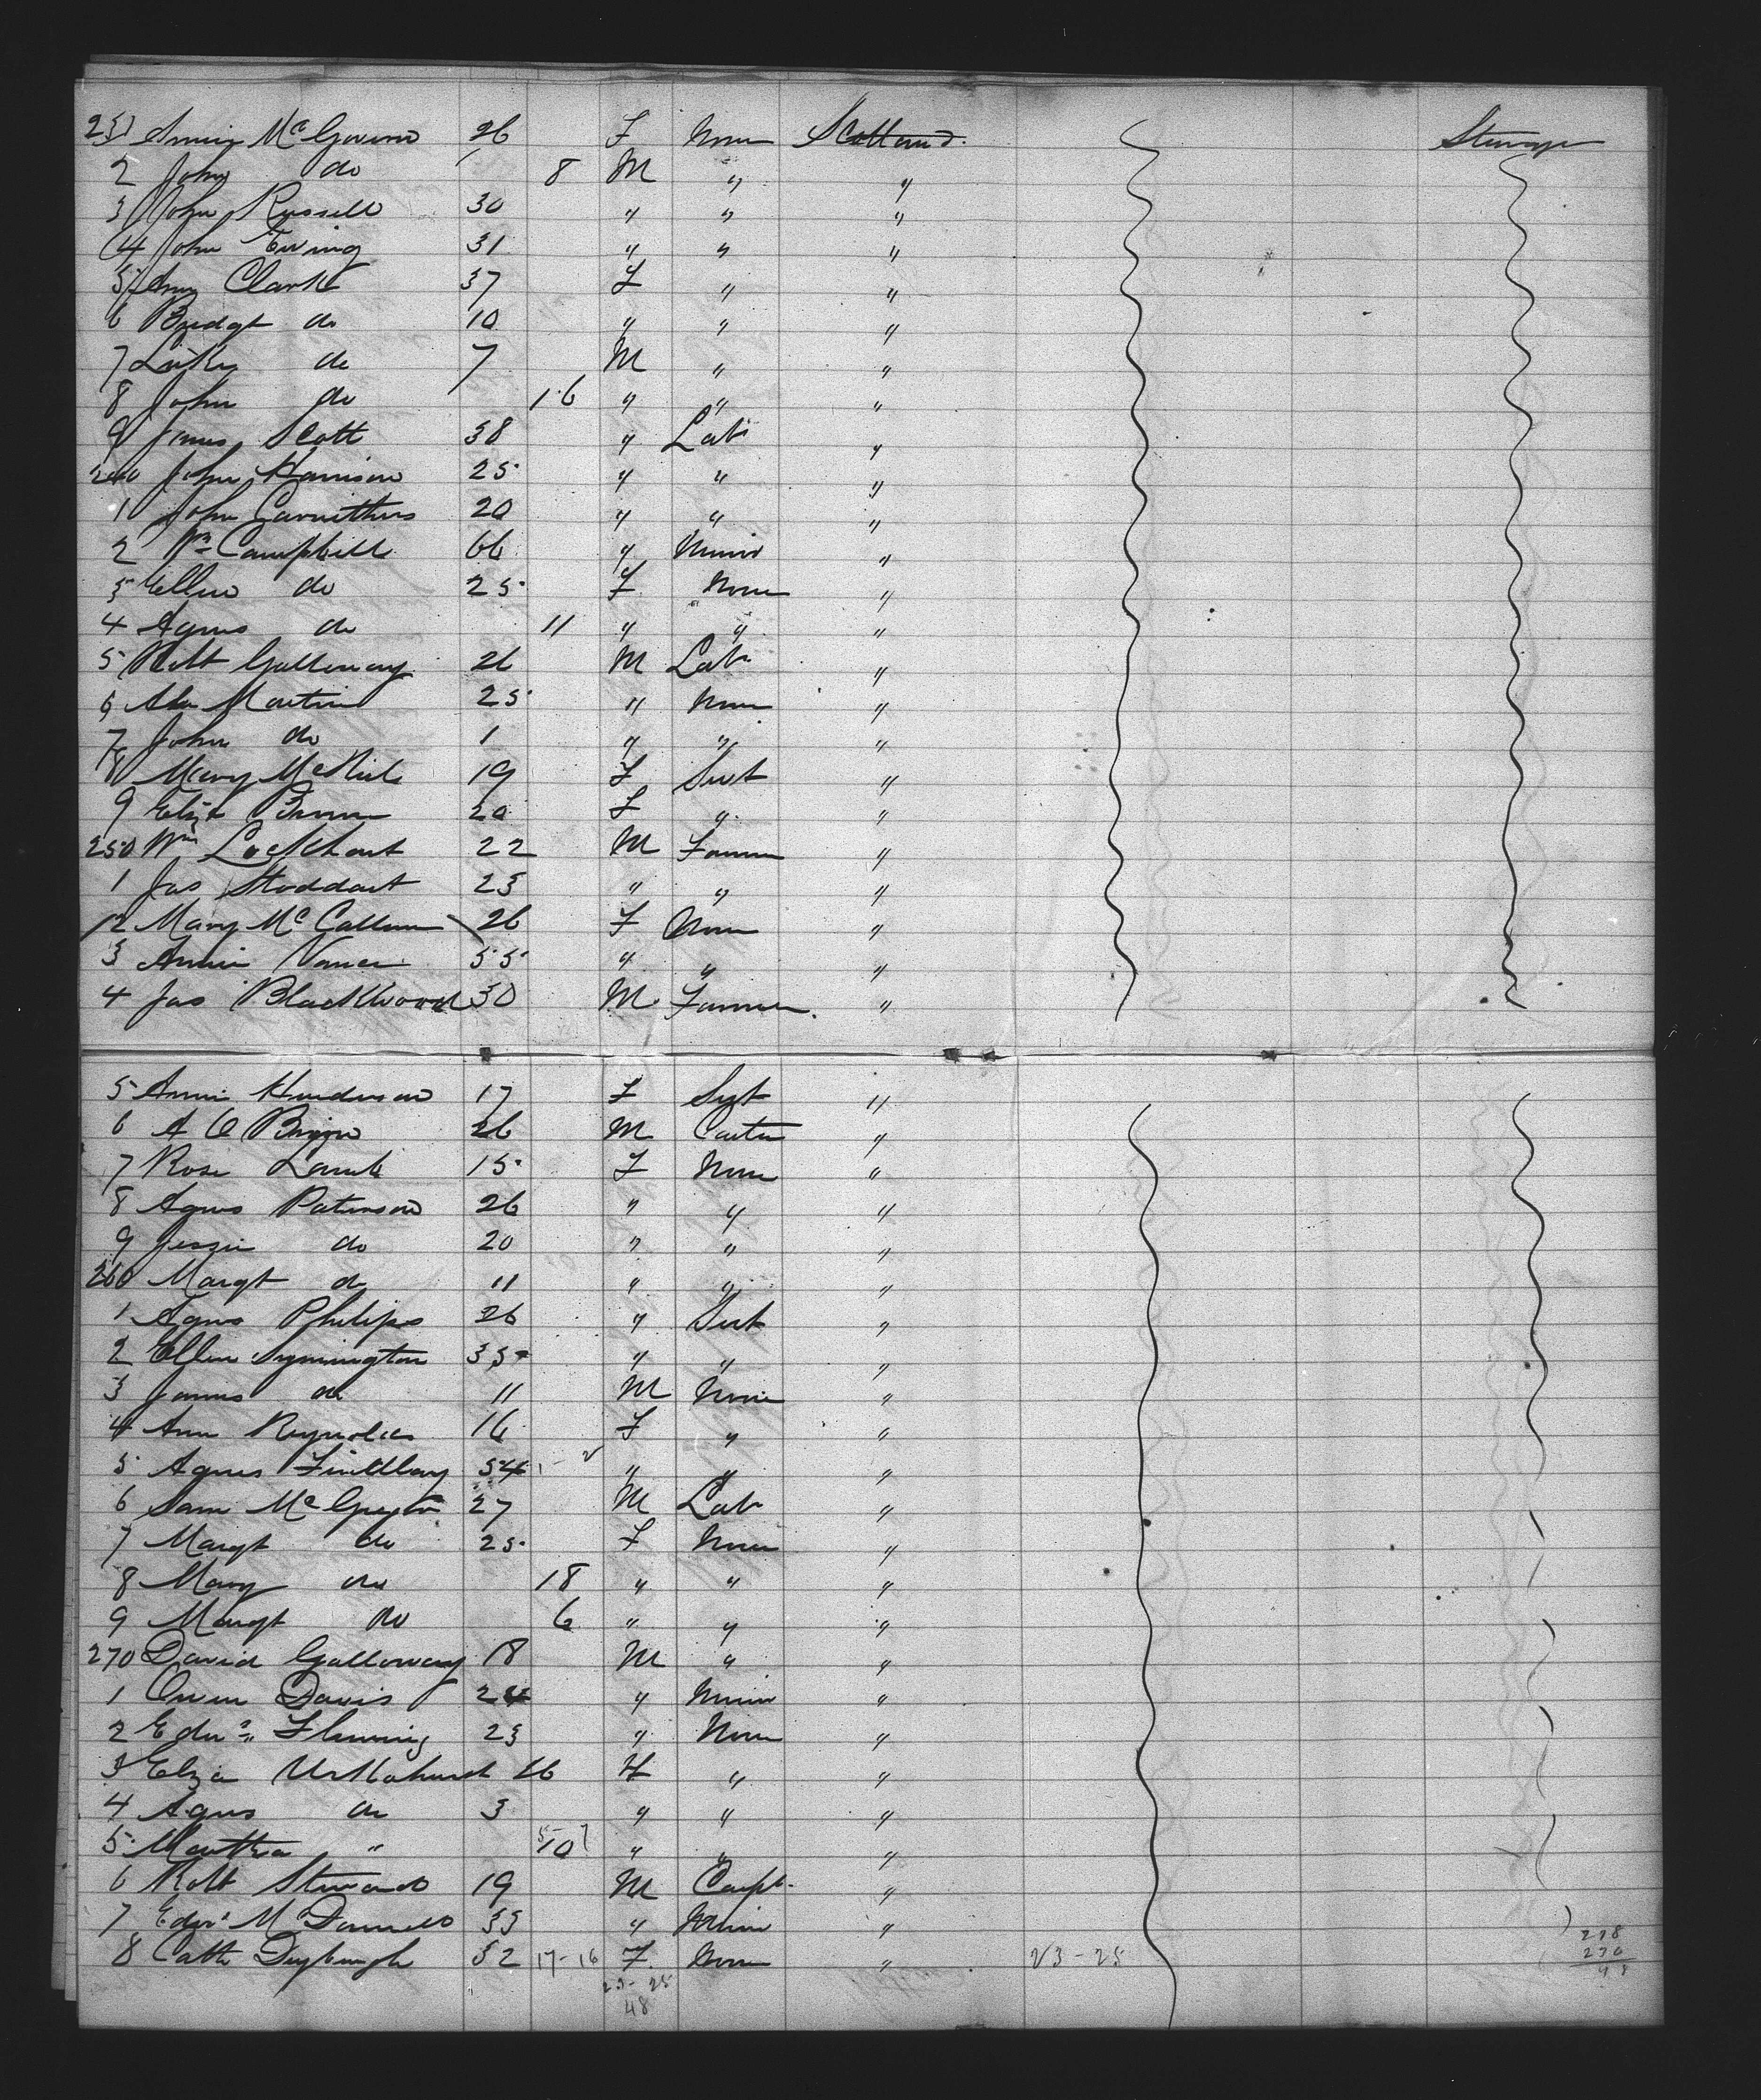 231 Annie McGovern 26 F None Scotland. Steerage
2 John do 8 M " "
3 John Russell 30 " " "
4 John Ewing 31 " " "
5 Amy Clark 37 F " "
6 Bridgt do 10 " " "
7 Luke do 7 M " "
8 John do 1.6 " " "
9 James Scott 38 " Labr "
240 John Harrison 25 " " "
1 John Carruthers 20 " " "
2 Wm Campbell 66 " Miner "
3 Ellen do 25 F None "
4 Agnes do 11 " " "
5 Robt Galloway 26 M Labr "
6 Alex Martin 25 " None "
7 John do 1 " " "
8 Mary 19 F Svt "
9 Eliza Brown 20 F " "
250 Wm Lockhart 22 M Farmer "
1 Jas Stoddart 23 " " "
2 Mary McCallum 26 F None "
3 Annie Vance 55 " " "
4 Jas Blackwood 30 M Farmer "
5 Annie Henderson 17 F Svt "
6 A C 26 M Carter "
7 Rose Lamb 15 F None "
8 Agnes Paterson 26 " " "
9 Jessie do 20 " " "
260 Margt do 11 " " "
1 Agnes Philips 26 " Svt "
2 Ellen Symington 35 " " "
3 James do 11 M None "
4 Ann Reynolds 16 F " "
5 Agnes Findlay 54 " " "
6 Sam McGregor 27 M Labr "
7 Margt do 25 F None "
8 Mary do 18 " " "
9 Margt do 6 " " "
270 David Galloway 18 M " "
1 Owen Davis 24 " Miner "
2 Edwd Fleming 23 " None "
3 Eliza 26 F " "
4 Agnes do 3 " " "
5 Martha " 10 " " "
6 Robt Stewart 19 M Carpt "
7 Edwd McDonnell 33 " Miner "
8 Cath 32 17-16 F None " 23-25
23-25
48
278
230
48